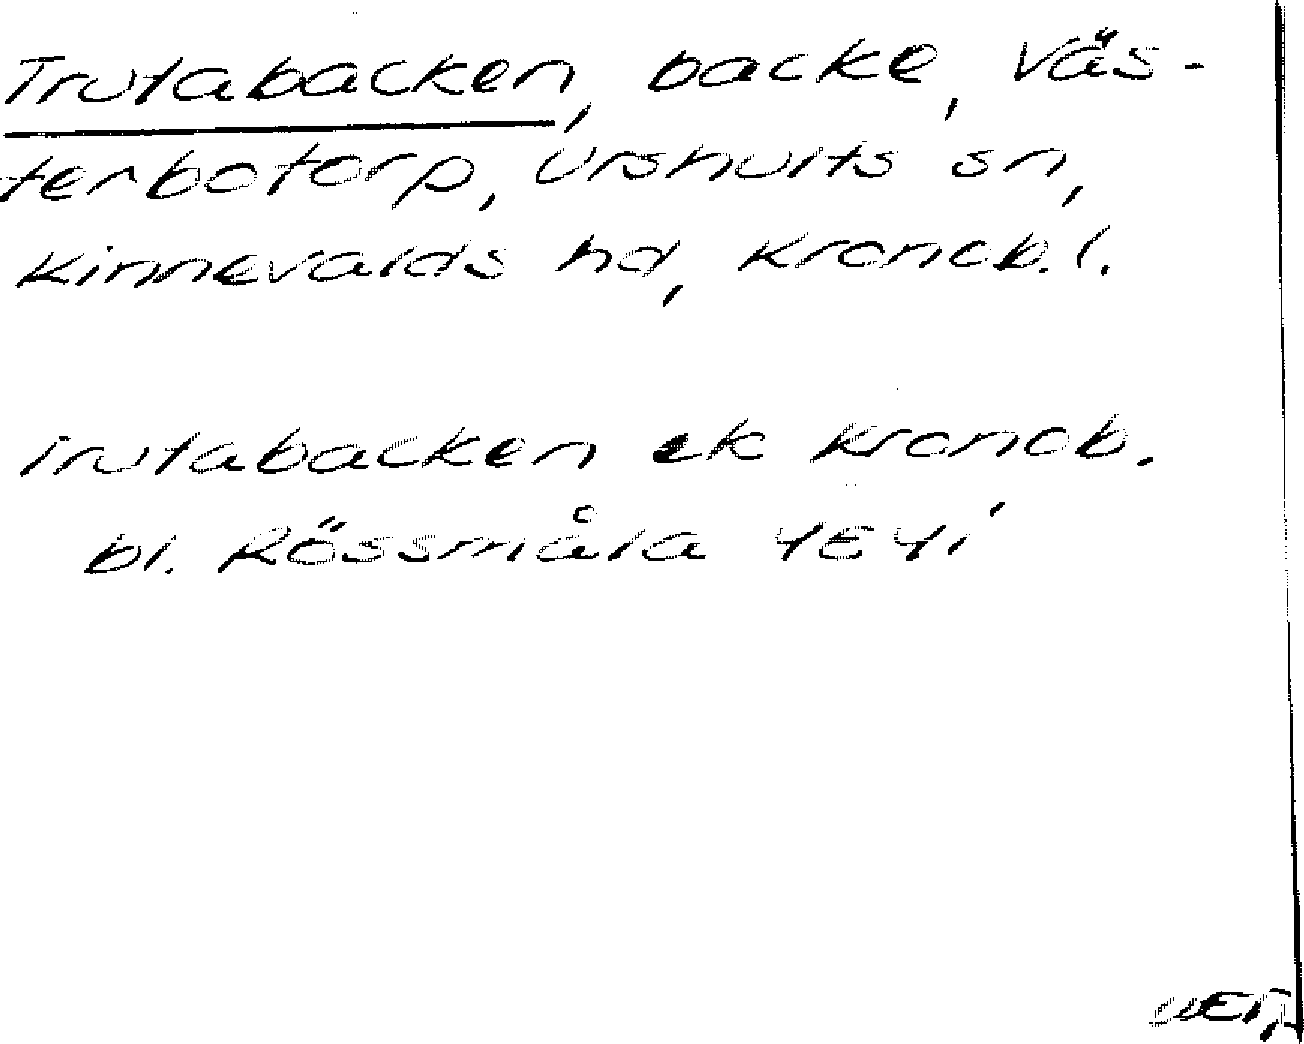 Trutabacken, backe, Väs-
terbotorp, Urshults sn,
Kinnevalds hd, Kronob. l.
Trutabacken ek Kronob.
bl. Rössmåla 4E4i